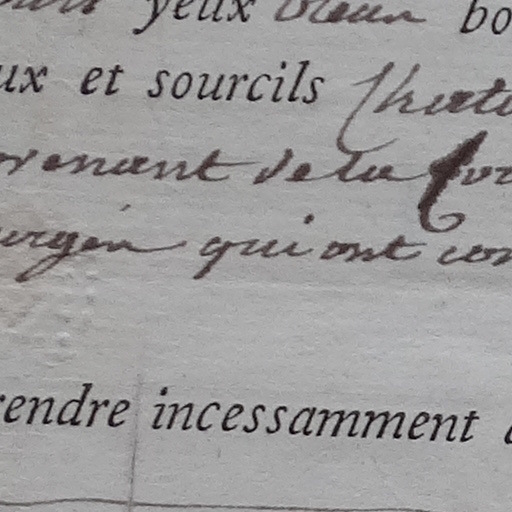 yeux bleux bo
ux et sourcils Chata
venant de la
qui ont con
rendre incessamment